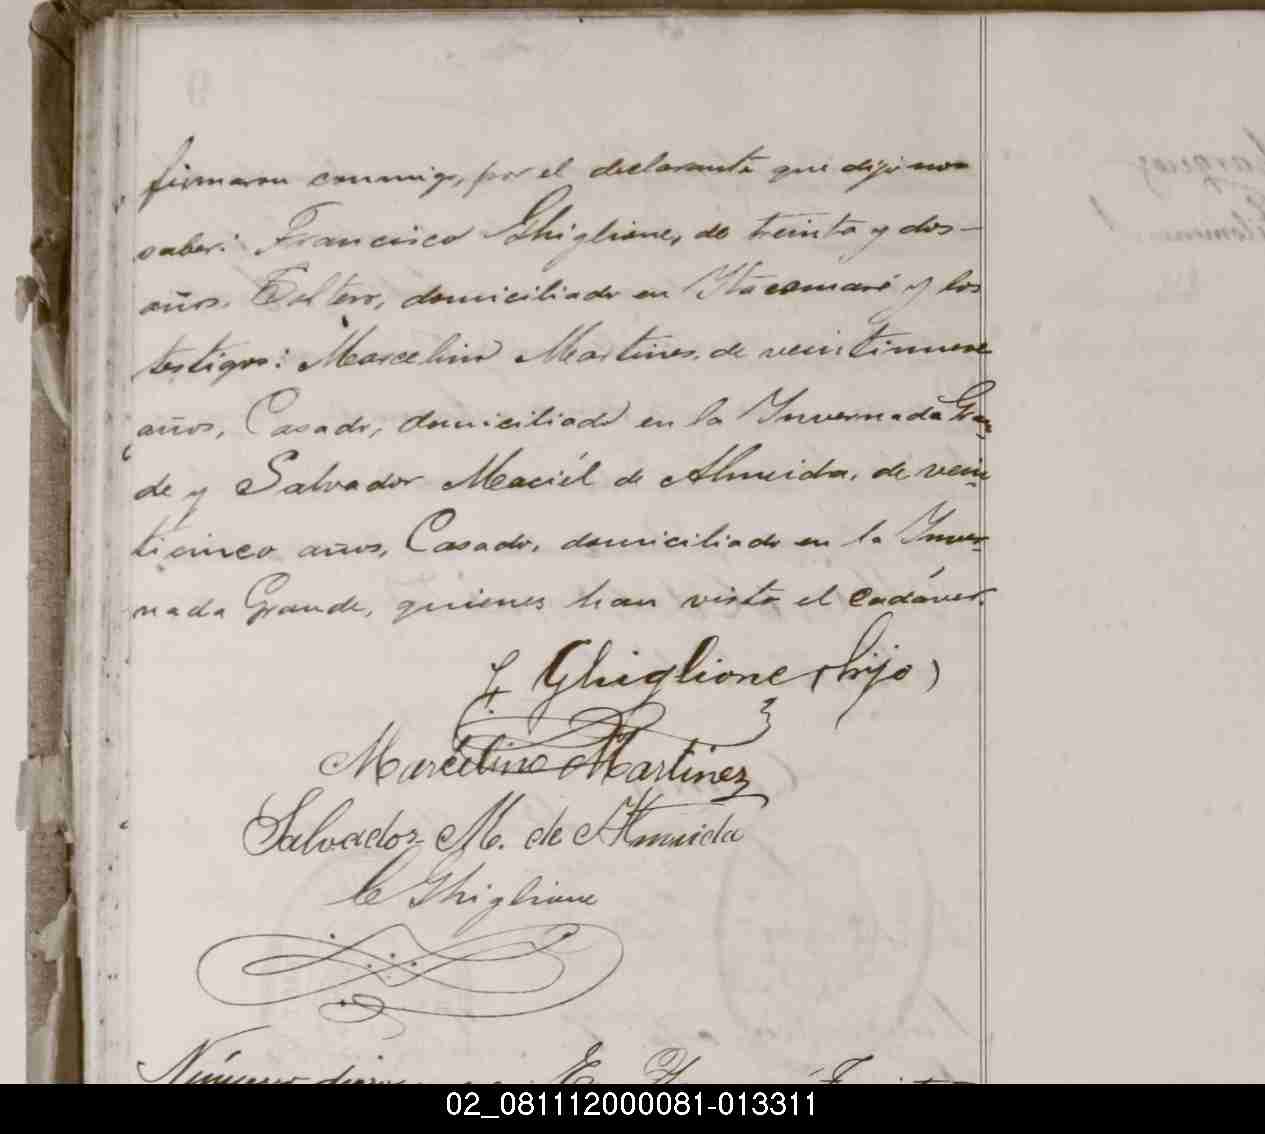 firmaron conmigo, por el declarante que dijo no
saber: Francisco Ghiglione, de treinta y dos
años, Soltero, domiciliado en Itacomaré y los
testigos: Marcelino Martines, de veintinueve
años, Casado, domiciliado en la Invernada Gran
de y Salvador Maciél de Almeida, de vein
ticinco años, Casado, domiciliado en la Inver
nada Grande, quienes han visto el cadáver.
Ghiglione (hijo)
Marcelino Martinez
Salvador M. de Almeida
Ghiglione
Número
02_081112000081-013311